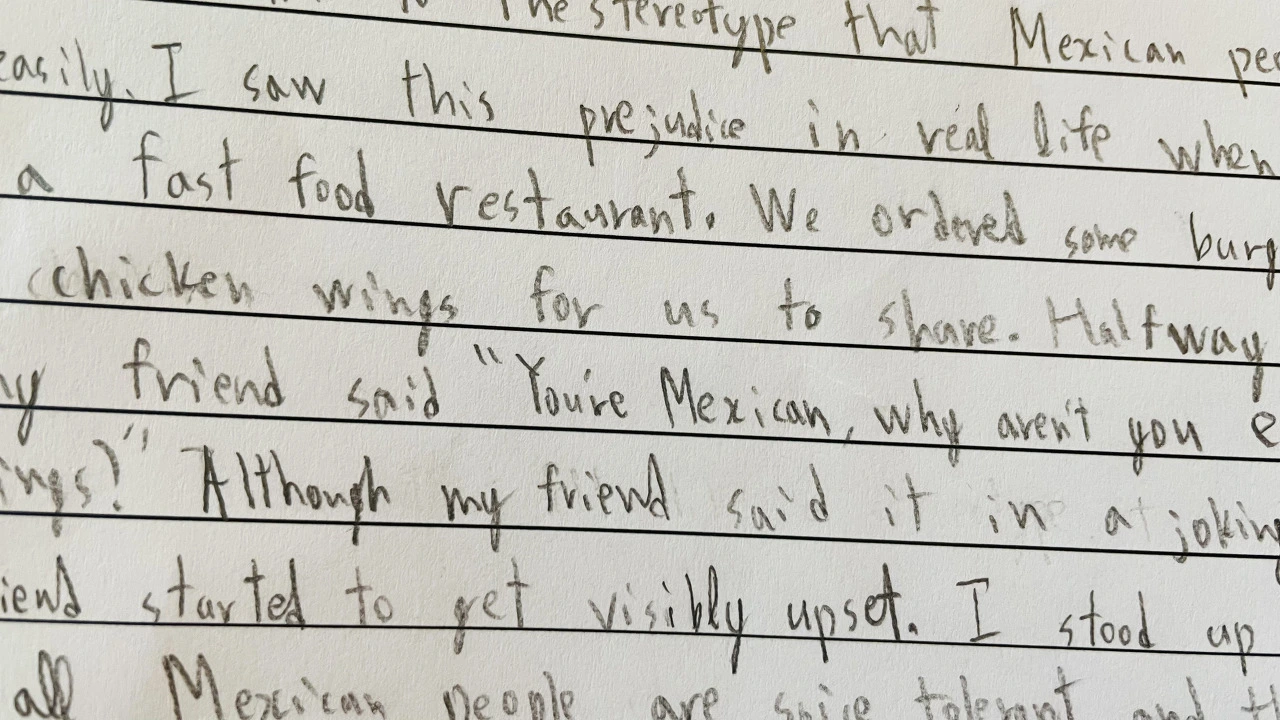 The stereotype that Mexican
easily. I saw this prejudice in real life when
a fast food restaurant. We ordered some burg
chicken wings for us to share. Halfway
friend said "You're Mexican, why aren't you e
ings?" Although my friend said it in a joking
iend started to get visibly upset. I stood up
all Mexican people are spice tolerant and th